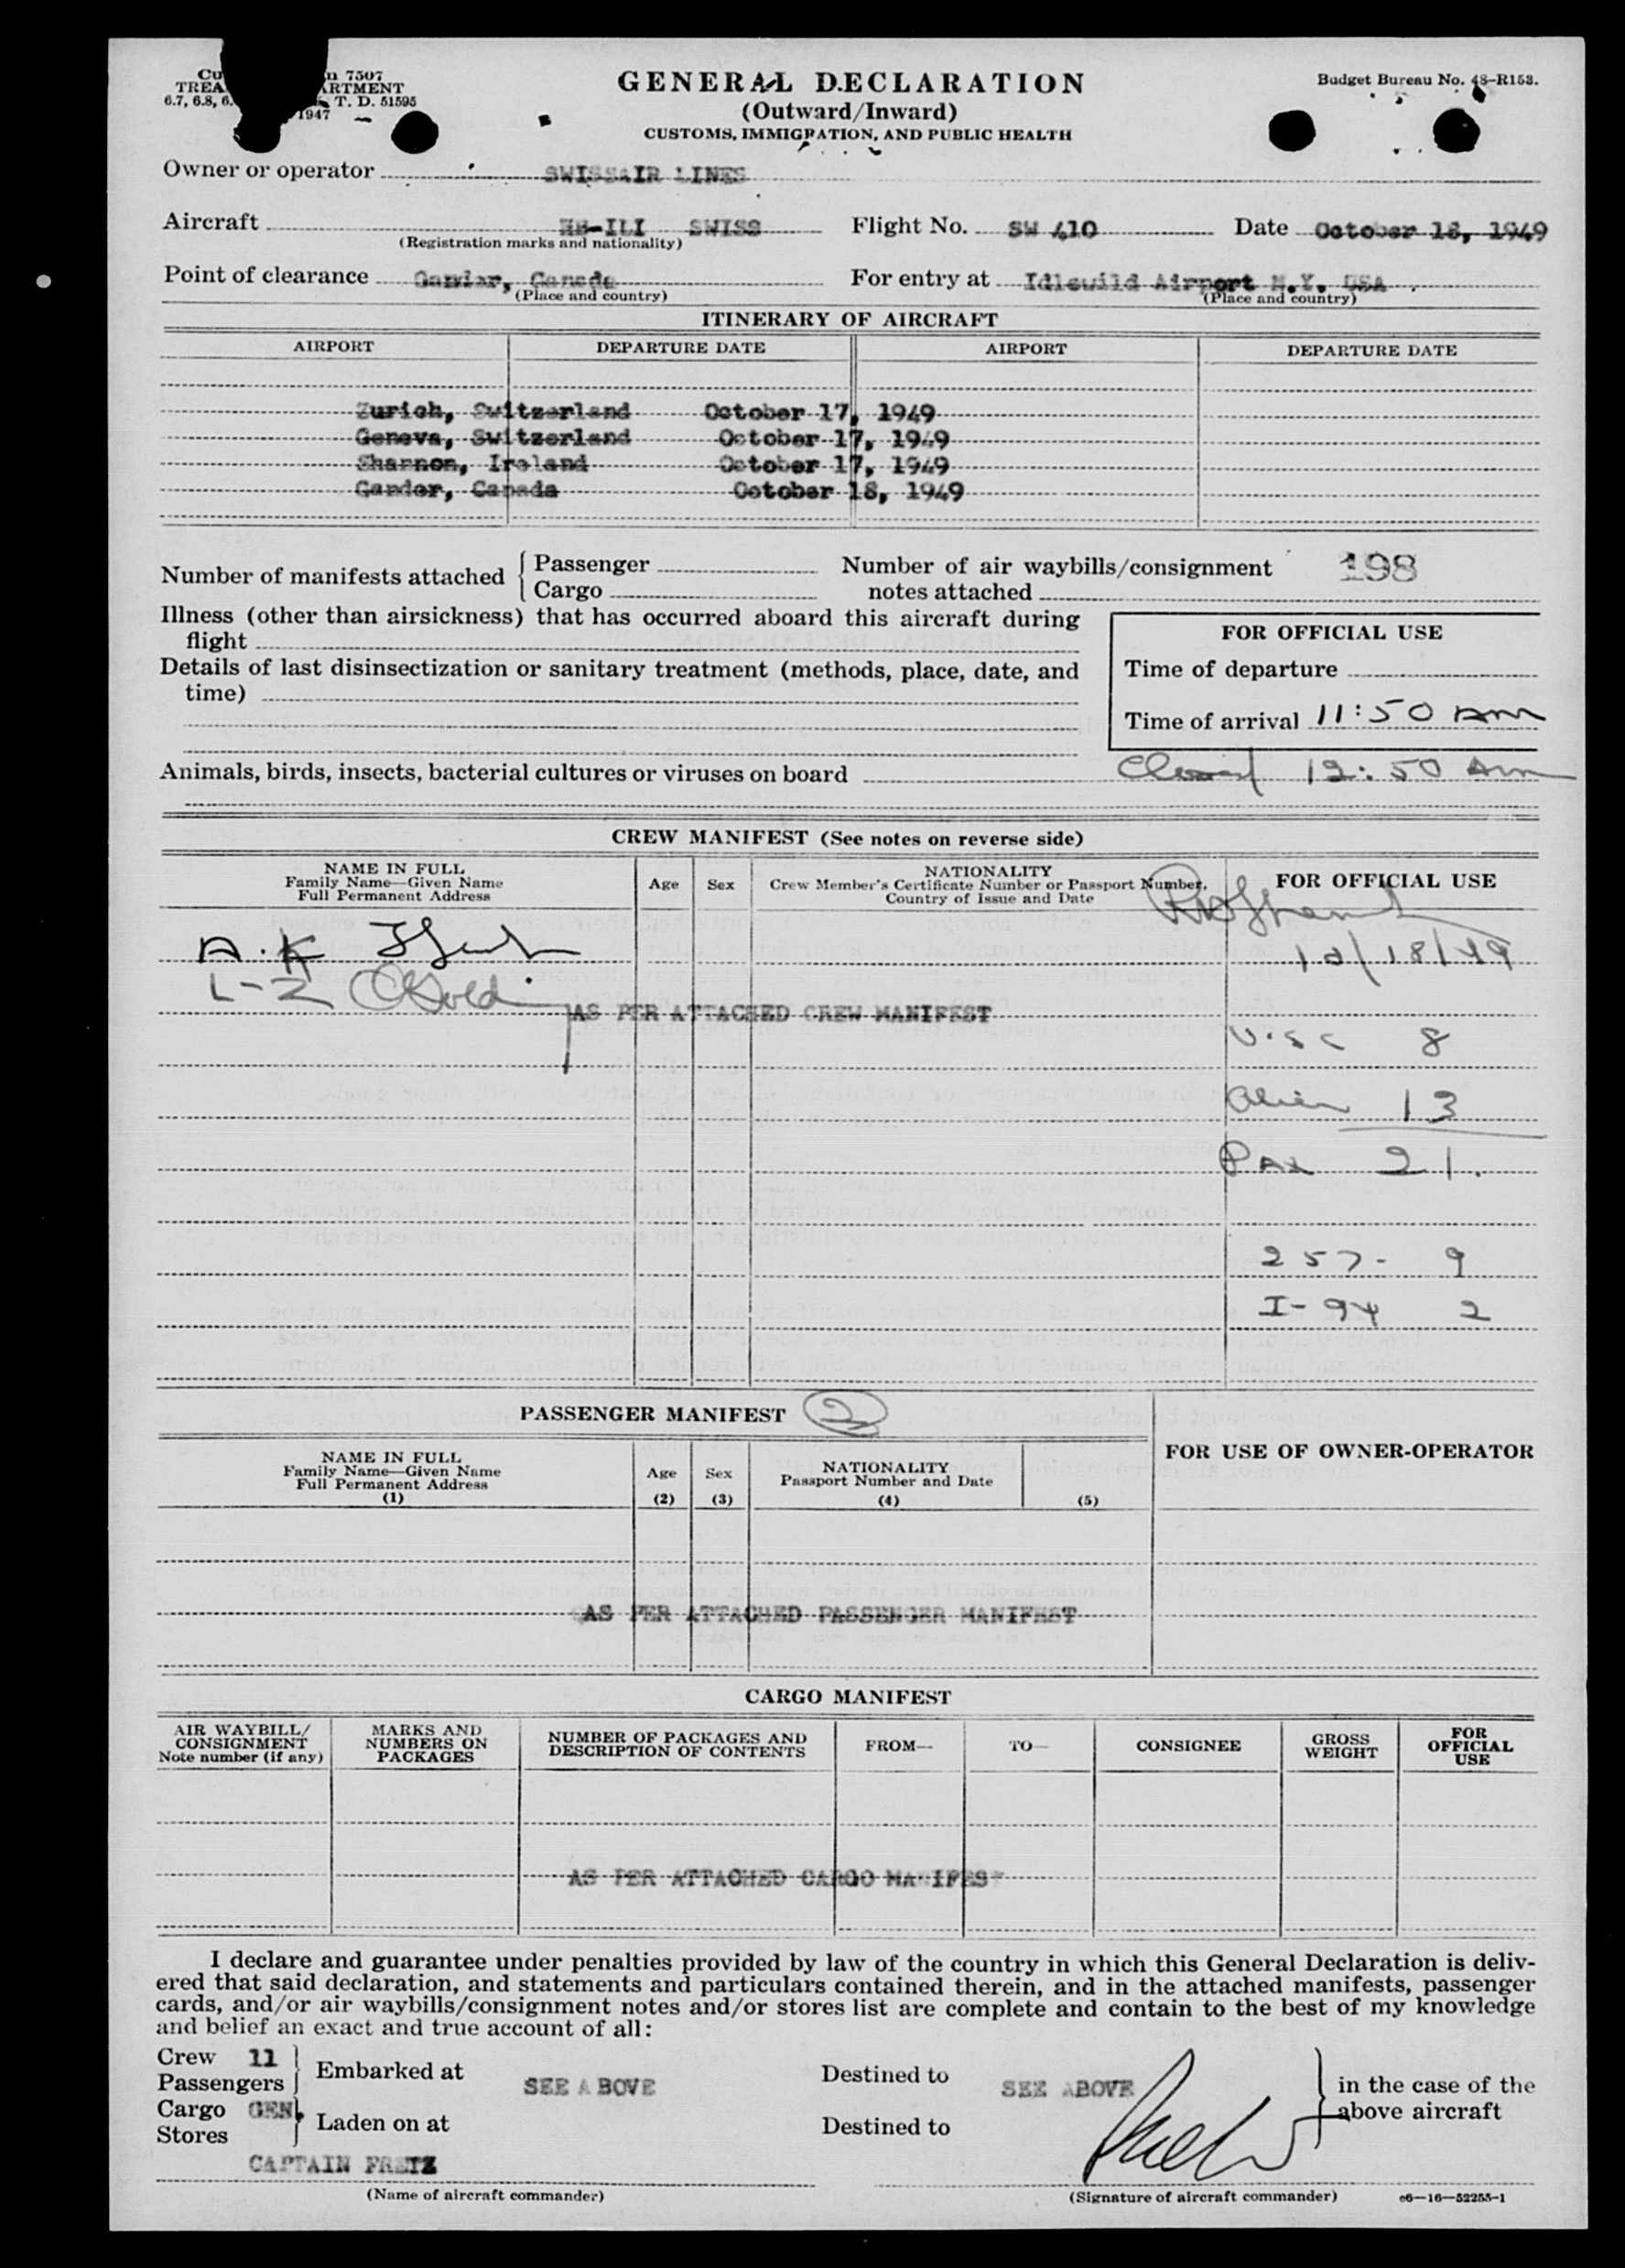 7507
ARTMENT
6.7, 6.8, T. D. 51595
1947
GENERAL DECLARATION
(Outward/Inward)
CUSTOMS, IMMIGRATION, AND PUBLIC HEALTH
Budget Bureau No. 48–R153.
Owner or operator SWISSAIR LINES
Aircraft HB-ILI SWISS Flight No. SW 410 Date October 18, 1949
(Registration marks and nationality)
Point of clearance Gander, Canada For entry at Idlewild Airport N.Y. USA
(Place and country) (Place and country)
ITINERARY OF AIRCRAFT
AIRPORT DEPARTURE DATE AIRPORT DEPARTURE DATE
Zurich, Switzerland October 17, 1949
Geneva, Switzerland October 17, 1949
Shannon, Ireland October 17, 1949
Gander, Canada October 18, 1949
Number of manifests attached { Passenger
Cargo
Number of air waybills/consignment 198
notes attached
Illness (other than airsickness) that has occurred aboard this aircraft during
flight
Details of last disinsectization or sanitary treatment (methods, place, date, and
time)
FOR OFFICIAL USE
Time of departure
Time of arrival 11:50 Am
Animals, birds, insects, bacterial cultures or viruses on board
12:50 Am
CREW MANIFEST (See notes on reverse side)
NAME IN FULL
Family Name—Given Name
Full Permanent Address
Age Sex
NATIONALITY
Crew Member's Certificate Number or Passport Number,
Country of Issue and Date
FOR OFFICIAL USE
10/18/49
A. K
AS PER ATTACHED CREW MANIFEST
U.S.C 8
Alien 13
Pax 21.
257- 9
I-94 2
PASSENGER MANIFEST 2
NAME IN FULL
Family Name—Given Name
Full Permanent Address
(1)
Age
(2)
Sex
(3)
NATIONALITY
Passport Number and Date
(4)
(5)
FOR USE OF OWNER-OPERATOR
AS PER ATTACHED PASSENGER MANIFEST
CARGO MANIFEST
AIR WAYBILL/
CONSIGNMENT
Note number (if any)
MARKS AND
NUMBERS ON
PACKAGES
NUMBER OF PACKAGES AND
DESCRIPTION OF CONTENTS
FROM—
TO—
CONSIGNEE
GROSS
WEIGHT
FOR
OFFICIAL
USE
AS PER ATTACHED CARGO MANIFEST
I declare and guarantee under penalties provided by law of the country in which this General Declaration is deliv-
ered that said declaration, and statements and particulars contained therein, and in the attached manifests, passenger
cards, and/or air waybills/consignment notes and/or stores list are complete and contain to the best of my knowledge
and belief an exact and true account of all:
Crew 11
Passengers
Embarked at SEE ABOVE Destined to SEE ABOVE
Cargo GEN.
Stores
Laden on at Destined to
in the case of the
above aircraft
CAPTAIN FRETZ
(Name of aircraft commander) (Signature of aircraft commander) c6—16—52255-1